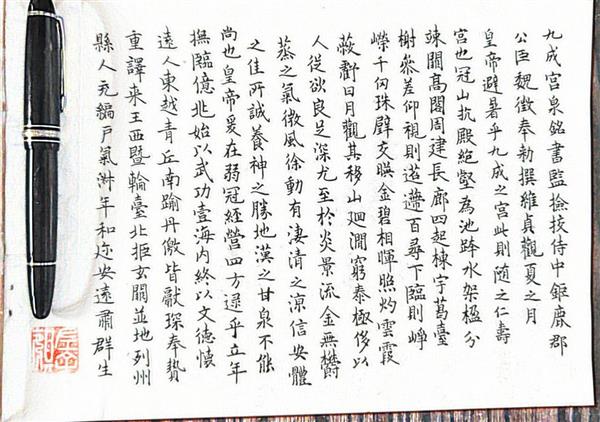 九成宮泉銘書監撿挍侍中鉅鹿郡
公臣魏徵奉勅撰維貞觀夏之月
皇帝避暑乎九成之宮此則隨之仁壽
宮也冠山抗殿絕壑為池跨水架楹分
竦闕高閣周建長廊四起棟宇葛臺
榭參差仰視則迢遰百尋下臨則崢
嶸千仞珠壁交暎金碧相暉照灼雲霞
蔽虧日月觀其移山廻澗窮泰極侈以
人從欲良足深尤至於炎景流金無欝
蒸之氣微風徐動有淒清之涼信安體
之佳所誠養神之勝地漢之甘泉不能
尚也皇帝爰在弱冠經營四方逮乎立年
撫臨億兆始以武功壹海內終以文德懷
遠人東越青丘南踰丹儌皆獻琛奉贄
重譯来王西暨輪臺北拒玄闕並地列州
縣人充編戶氣淋年和迩安遠肅群生